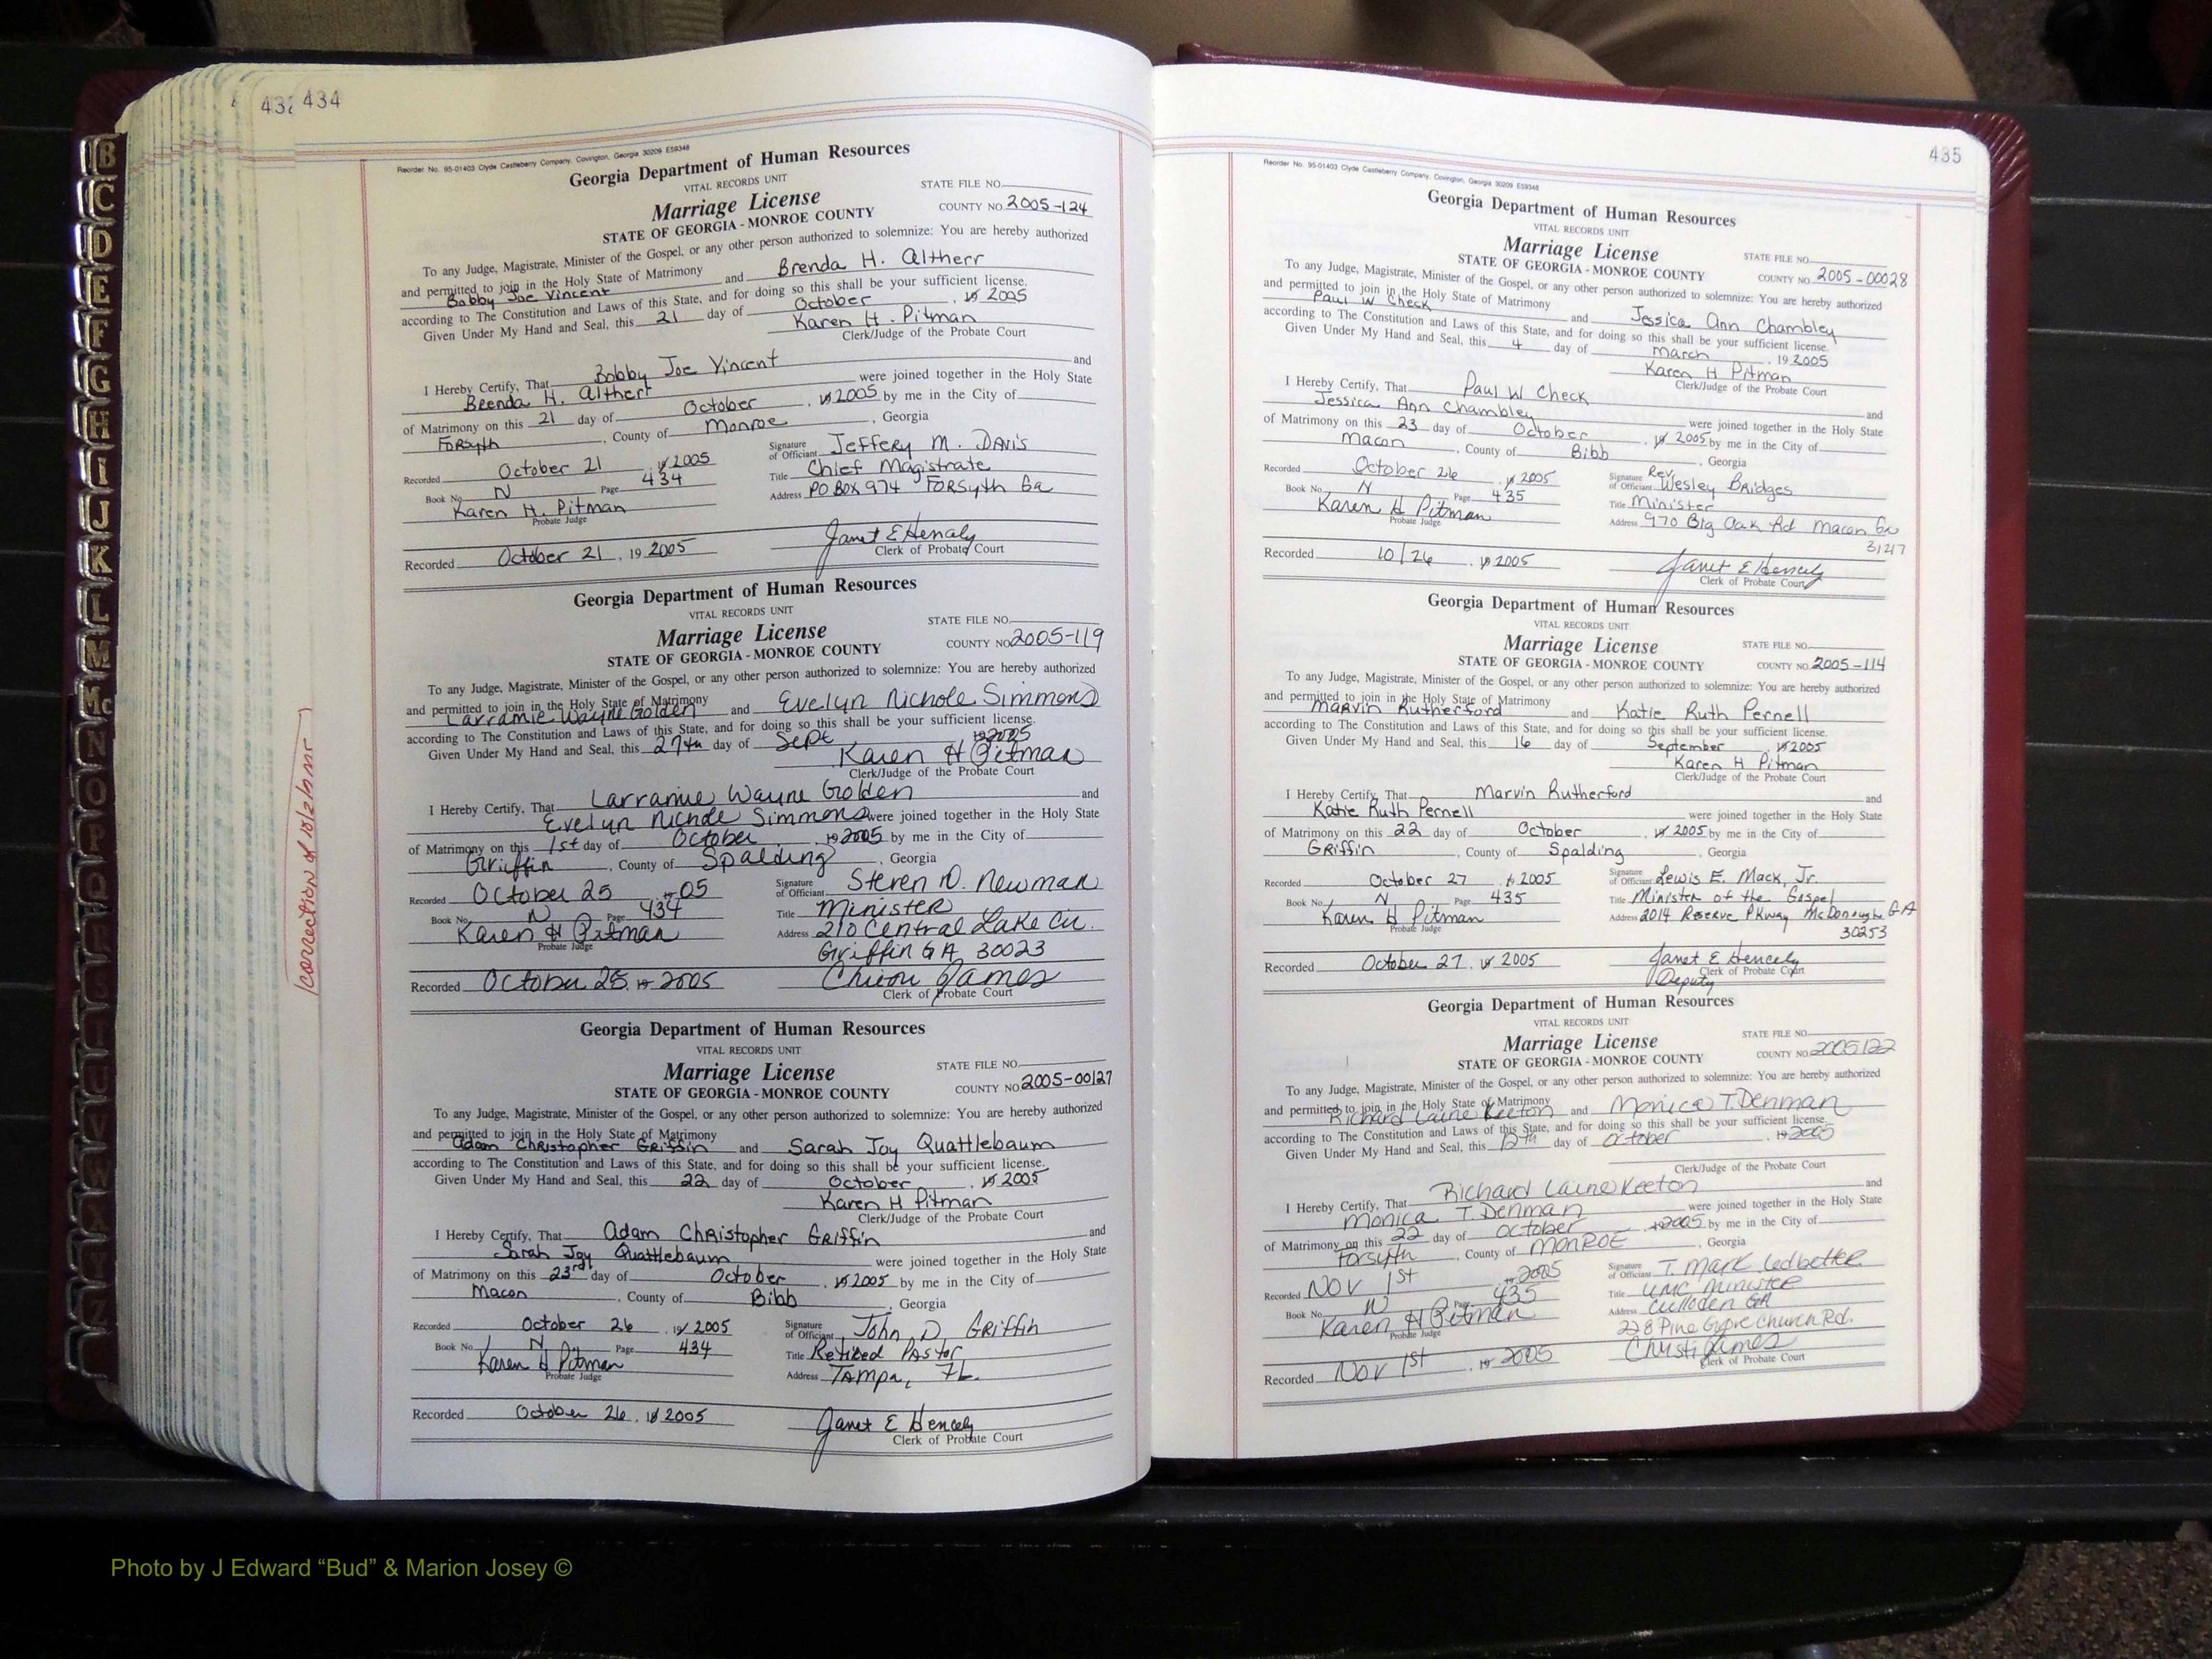 432 434
B
C
D
E
F
G
H
I
J
K
L
M
Mc
N
O
P
Reorder No. 95-01403 Clyde Castleberry Company, Covington, Georgia 30209 E59348
Georgia Department of Human Resources
VITAL RECORDS UNIT
STATE FILE NO.
Marriage License
COUNTY NO. 2005-124
STATE OF GEORGIA - MONROE COUNTY
To any Judge, Magistrate, Minister of the Gospel, or any other person authorized to solemnize: You are hereby authorized
and permitted to join in the Holy State of Matrimony
Bobby Joe Vincent and Brenda H. Altherr
according to The Constitution and Laws of this State, and for doing so this shall be your sufficient license.
Given Under My Hand and Seal, this 21 day of October , 19 2005
Karen H. Pitman
Clerk/Judge of the Probate Court
I Hereby Certify, That Bobby Joe Vincent and
Brenda H. Altherr were joined together in the Holy State
of Matrimony on this 21 day of October , 19 2005 by me in the City of
Forsyth , County of Monroe , Georgia
Recorded October 21 , 19 2005
Book No. N Page 434
Karen H. Pitman
Probate Judge
Signature of Officiant Jeffery M. Davis
Title Chief Magistrate
Address PO Box 974 Forsyth Ga
Recorded October 21 , 19 2005
Janet E Hencely
Clerk of Probate Court
Georgia Department of Human Resources
VITAL RECORDS UNIT
STATE FILE NO.
Marriage License
COUNTY NO. 2005-119
STATE OF GEORGIA - MONROE COUNTY
To any Judge, Magistrate, Minister of the Gospel, or any other person authorized to solemnize: You are hereby authorized
and permitted to join in the Holy State of Matrimony
Larramie Wayne Golden and Evelyn Nichole Simmons
according to The Constitution and Laws of this State, and for doing so this shall be your sufficient license.
Given Under My Hand and Seal, this 27th day of Sept 19 2005
Karen H Pitman
Clerk/Judge of the Probate Court
I Hereby Certify, That Larramie Wayne Golden and
Evelyn Nichole Simmons were joined together in the Holy State
of Matrimony on this 1st day of October , 19 2005 by me in the City of
Griffin , County of Spalding , Georgia
Recorded October 25 , 19 05
Book No. N Page 434
Karen H Pitman
Probate Judge
Signature of Officiant Steven D. Newman
Title Minister
Address 210 Central Lake Cir.
Griffin GA 30023
Recorded October 25, 19 2005
James
Clerk of Probate Court
Georgia Department of Human Resources
VITAL RECORDS UNIT
STATE FILE NO.
Marriage License
COUNTY NO. 2005-00127
STATE OF GEORGIA - MONROE COUNTY
To any Judge, Magistrate, Minister of the Gospel, or any other person authorized to solemnize: You are hereby authorized
and permitted to join in the Holy State of Matrimony
Adam Christopher Griffin and Sarah Joy Quattlebaum
according to The Constitution and Laws of this State, and for doing so this shall be your sufficient license.
Given Under My Hand and Seal, this 22 day of October , 19 2005
Karen H Pitman
Clerk/Judge of the Probate Court
I Hereby Certify, That Adam Christopher Griffin and
Sarah Joy Quattlebaum were joined together in the Holy State
of Matrimony on this 23rd day of October , 19 2005 by me in the City of
Macon , County of Bibb , Georgia
Recorded October 26 , 19 2005
Book No. N Page 434
Karen H Pitman
Probate Judge
Signature of Officiant John D. Griffin
Title Retired Pastor
Address Tampa, FL.
Recorded October 26, 19 2005
Janet E Hencely
Clerk of Probate Court
435
Reorder No. 95-01403 Clyde Castleberry Company, Covington, Georgia 30209 E59348
Georgia Department of Human Resources
VITAL RECORDS UNIT
Marriage License
STATE FILE NO.
STATE OF GEORGIA - MONROE COUNTY
COUNTY NO. 2005-00028
To any Judge, Magistrate, Minister of the Gospel, or any other person authorized to solemnize: You are hereby authorized
and permitted to join in the Holy State of Matrimony
Paul W Check and Jessica Ann Chambley
according to The Constitution and Laws of this State, and for doing so this shall be your sufficient license.
Given Under My Hand and Seal, this 4 day of March , 19 2005
Karen H Pitman
Clerk/Judge of the Probate Court
I Hereby Certify, That Paul W Check and
Jessica Ann Chambley were joined together in the Holy State
of Matrimony on this 23 day of October , 19 2005 by me in the City of
Macon , County of Bibb , Georgia
Recorded October 26 , 19 2005
Book No. N Page 435
Karen H Pitman
Probate Judge
Signature of Officiant Rev. Wesley Bridges
Title Minister
Address 970 Big Oak Rd Macon Ga
Recorded 10/26 , 19 2005
Janet E Hencely
Clerk of Probate Court
Georgia Department of Human Resources
VITAL RECORDS UNIT
Marriage License
STATE FILE NO.
STATE OF GEORGIA - MONROE COUNTY
COUNTY NO. 2005-114
To any Judge, Magistrate, Minister of the Gospel, or any other person authorized to solemnize: You are hereby authorized
and permitted to join in the Holy State of Matrimony
Marvin Rutherford and Katie Ruth Pernell
according to The Constitution and Laws of this State, and for doing so this shall be your sufficient license.
Given Under My Hand and Seal, this 16 day of September , 19 2005
Karen H Pitman
Clerk/Judge of the Probate Court
I Hereby Certify, That Marvin Rutherford and
Katie Ruth Pernell were joined together in the Holy State
of Matrimony on this 22 day of October , 19 2005 by me in the City of
Griffin , County of Spalding , Georgia
Recorded October 27 , 19 2005
Book No. N Page 435
Karen H Pitman
Probate Judge
Signature of Officiant Lewis E. Mack, Jr.
Title Minister of the Gospel
Address 2014 Reserve Pkway McDonough GA
30253
Recorded October 27, 19 2005
Janet E Hencely
Clerk of Probate Court
Deputy
Georgia Department of Human Resources
VITAL RECORDS UNIT
Marriage License
STATE FILE NO.
STATE OF GEORGIA - MONROE COUNTY
COUNTY NO. 2005122
To any Judge, Magistrate, Minister of the Gospel, or any other person authorized to solemnize: You are hereby authorized
and permitted to join in the Holy State of Matrimony
Richard Laine Keeton and Monica T. Denman
according to The Constitution and Laws of this State, and for doing so this shall be your sufficient license.
Given Under My Hand and Seal, this 12th day of October , 19 2005
Clerk/Judge of the Probate Court
I Hereby Certify, That Richard Laine Keeton and
Monica T. Denman were joined together in the Holy State
of Matrimony on this 22 day of October , 19 2005 by me in the City of
Forsyth , County of MONROE , Georgia
Recorded Nov 1st , 19 2005
Book No. N Page 435
Karen H Pitman
Probate Judge
Signature of Officiant T. Mark Ledbetter
Title UMC Minister
Address Culloden GA
228 Pine Grove Church Rd.
Recorded Nov 1st , 19 2005
Christi James
Clerk of Probate Court
Photo by J Edward “Bud” & Marion Josey ©